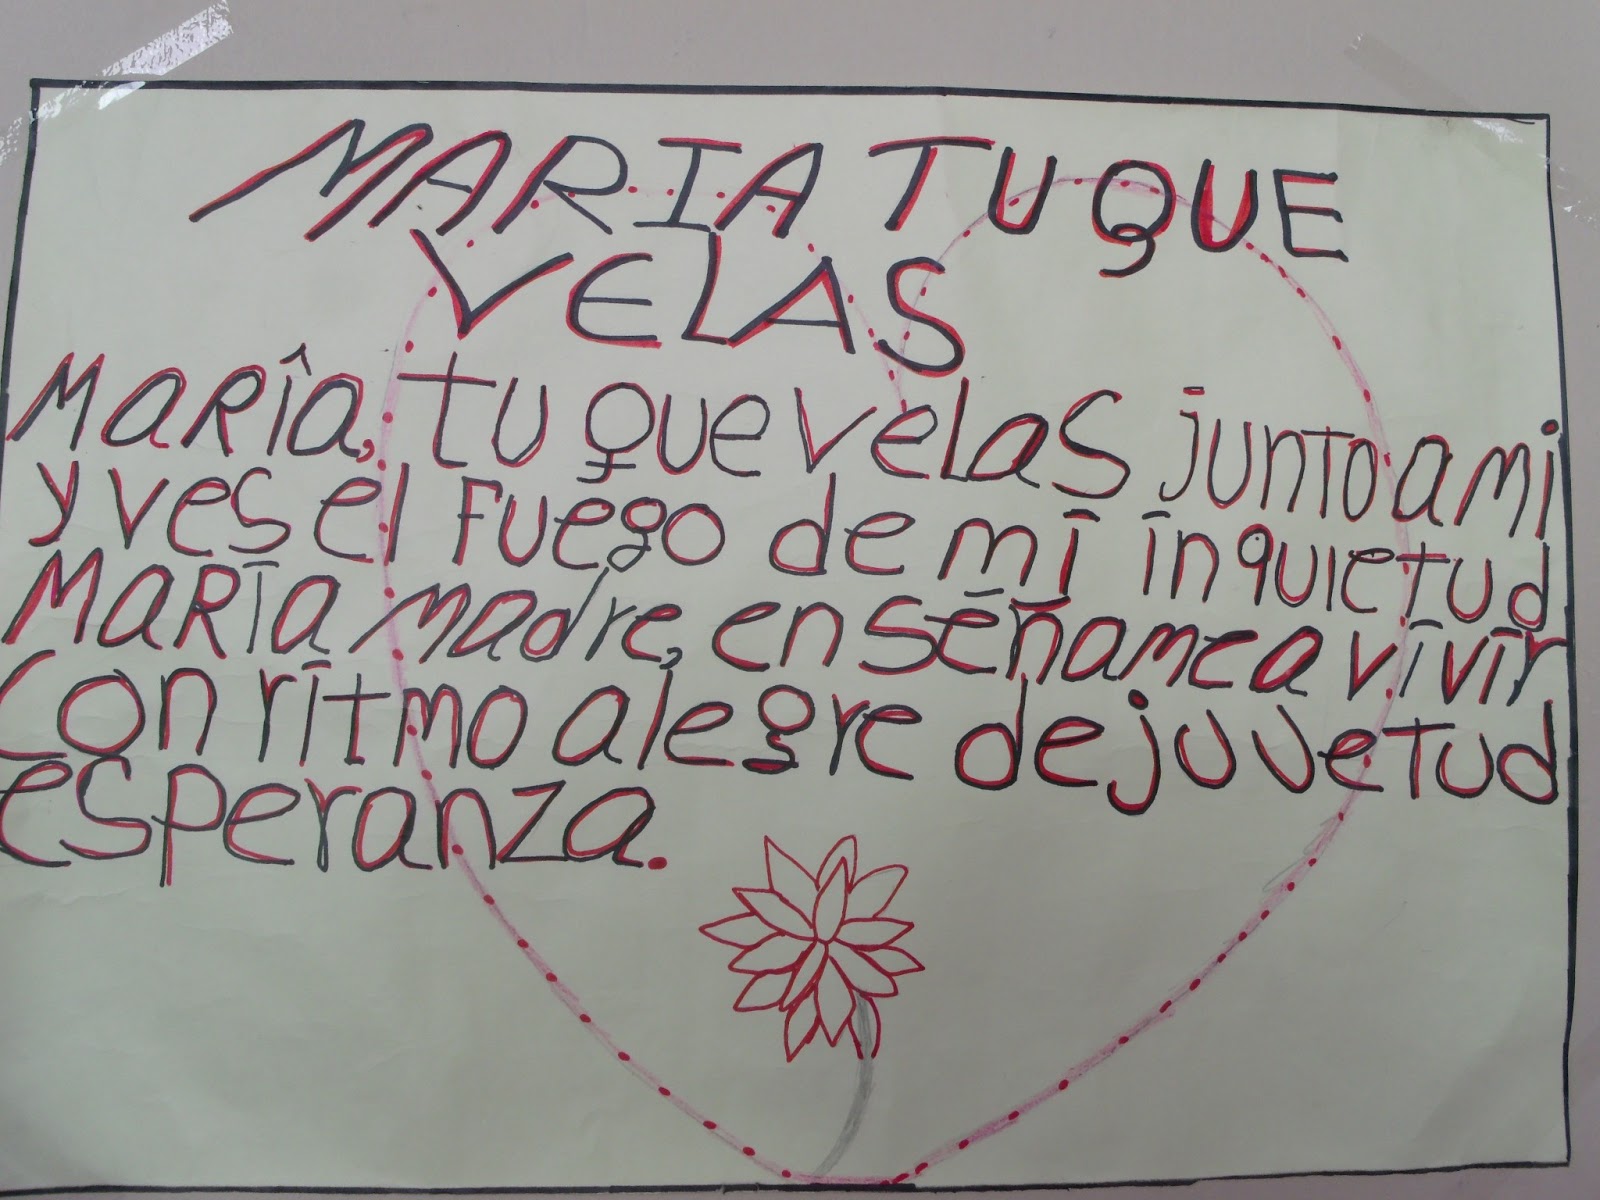 MARIA TU QUE
VELAS
María, tu que velas junto a mi
y ves el fuego de mi inquietud
María madre, enséñame a vivir
Con ritmo alegre de juvetud
esperanza.